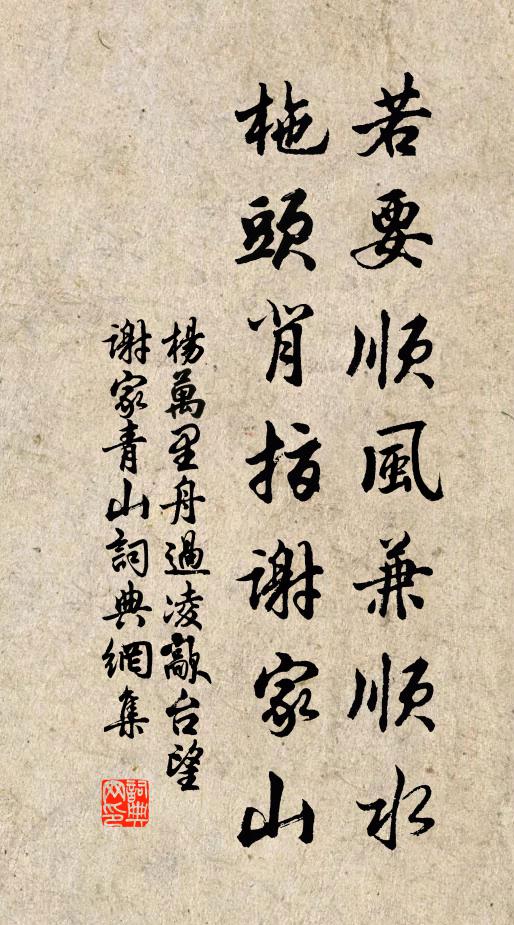 若要順風兼順水
柂頭背指謝家山
楊萬里舟過凌歊台望
謝家青山詞典網集
詞典
网印